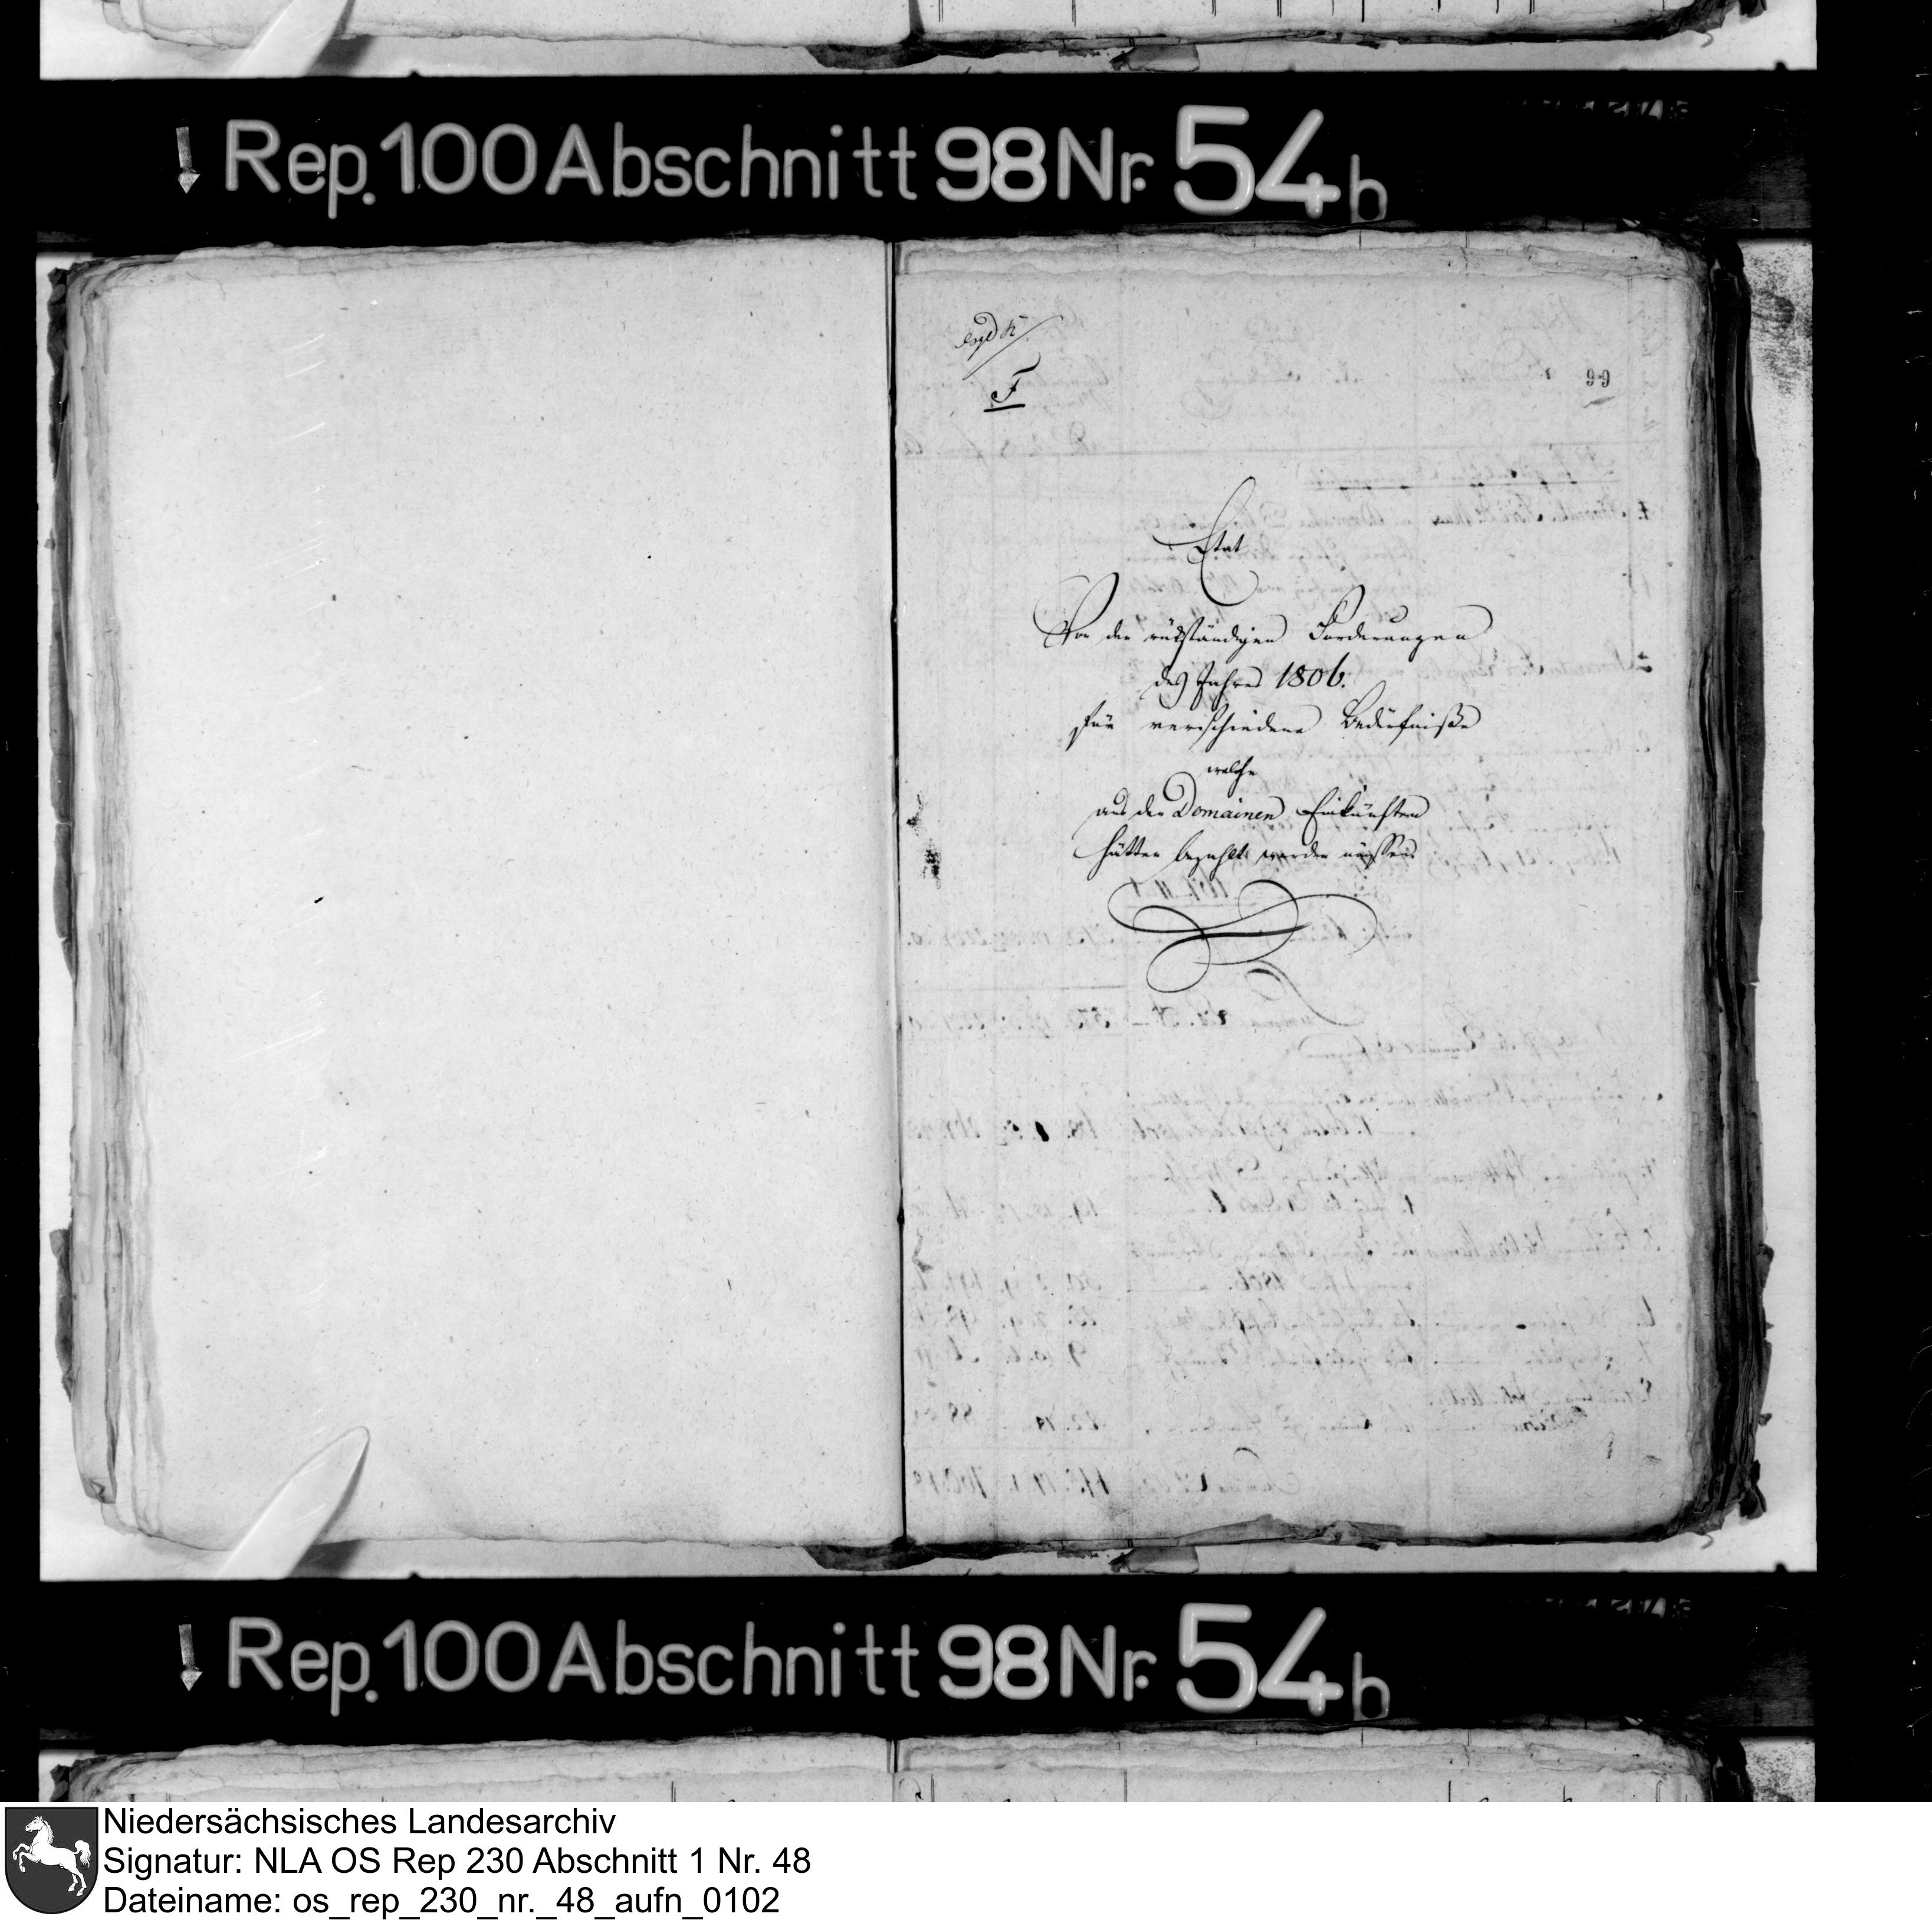 Rep. 100 Abschnitt 98 Nr. 54 b
F
99
Etat
Von den rükständigen Forderungen
des Jahres 1806.
für verschiedene Bedürfniße
welche
aus den Domainen Einkünften
hätten bezahlt werden müssen
Rep. 100 Abschnitt 98 Nr. 54 b
Niedersächsisches Landesarchiv
Signatur: NLA OS Rep 230 Abschnitt 1 Nr. 48
Dateiname: os_rep_230_nr._48_aufn_0102